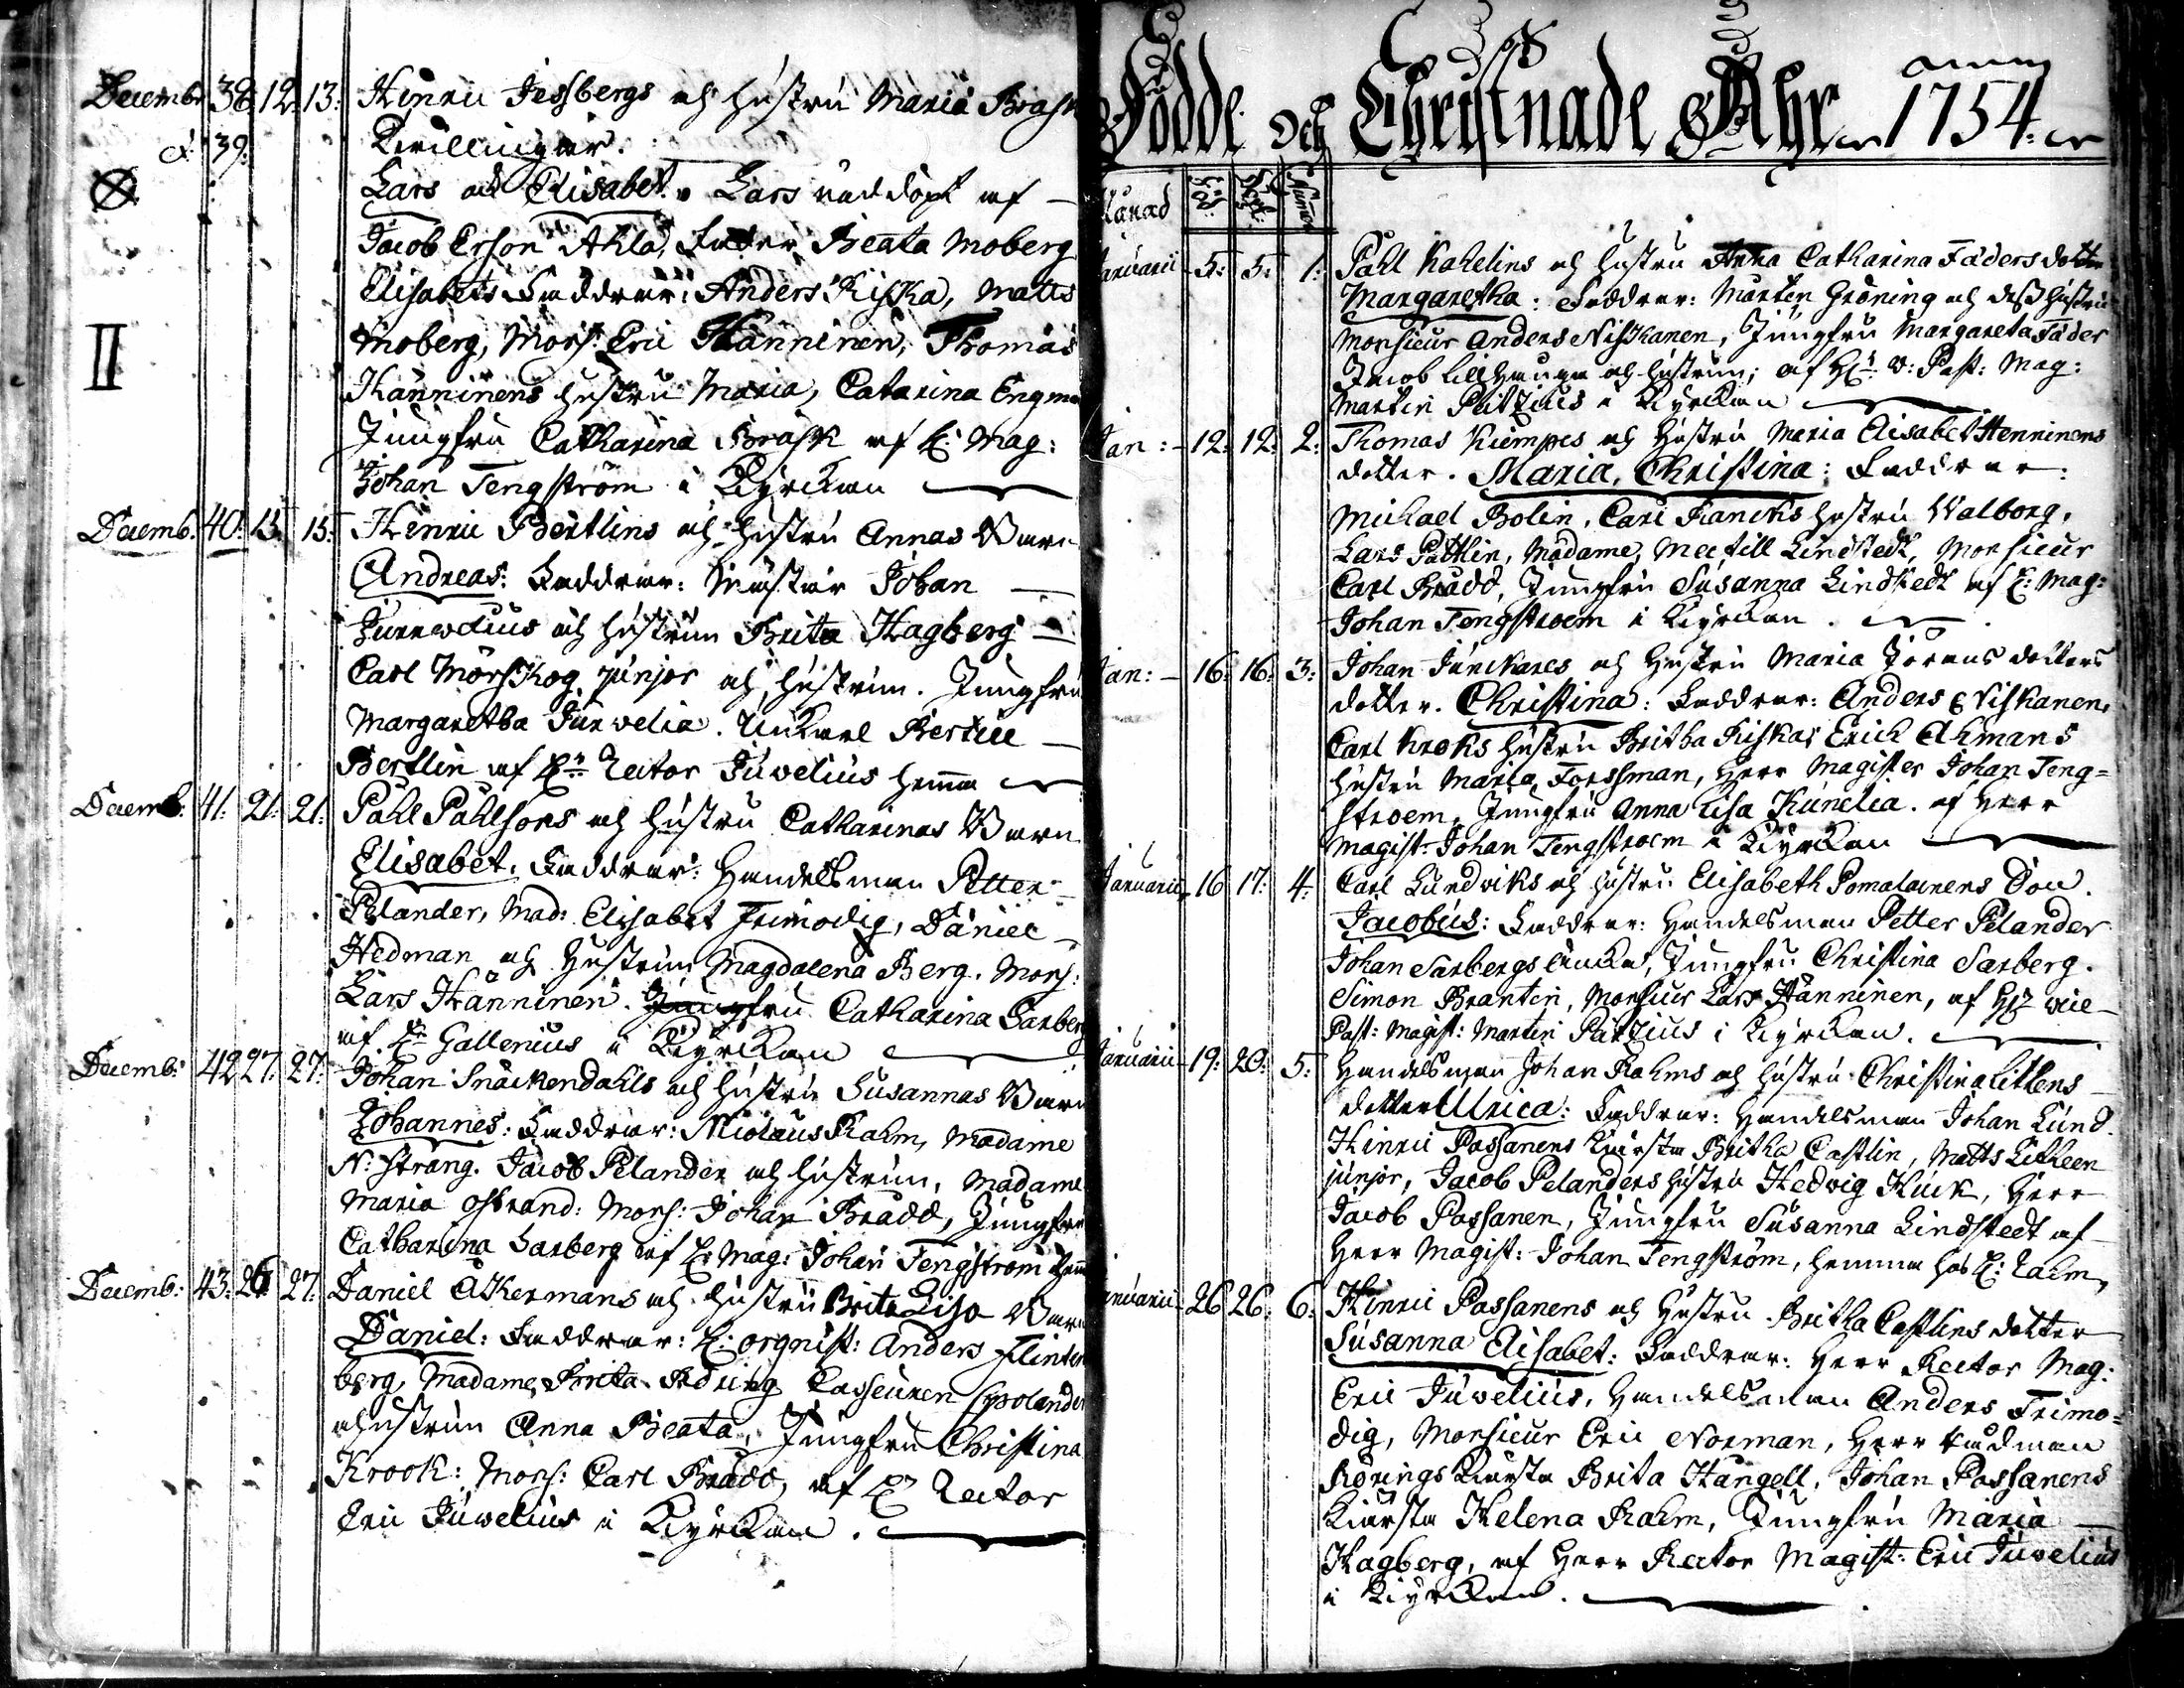 Decembr 38: 12: 13: Henric Jessbergs och hustru Maria Brask
d: 39: Tvillingar.
Lars och Elisabet. Lars nöddöpt af
Jacob Erson Ahla, Fadder Beata Moberg
Elisabets Faddrar: Anders Riska, Matts
II Moberg, Mons: Eric Hänninen, Thomas
Hänninens hustru Maria, Catarina Engman
Jungfru Catharina Brask af H: Mag:
Johan Tengström i Kyrckan
Decemb: 40: 15: 15: Henric Bertlins och hustru Annas Barn
Andreas: Faddrar: Mästar Johan
Junnelius och hustrun Brita Hagberg
Carl Mörskog junior och hustrun. Jungfru
Margaretha Juvelia. Unkarl Bertill
Bertlin af Hr: Rector Juvelius hemma
Decemb: 41: 21: 21: Påhl Påhlsons och hustru Catharinas Barn
Elisabet. Faddrar: Handelsman Petter
Pelander, Mad: Elisabet Frimodig, Daniel
Hedman och Hustrun Magdalena Berg. Mons:
Lars Hänninen. Jungfru Catharina Sarberg
af Hr Gallenius i Kyrckan
Decemb: 42 27: 27: Johan Snäckendahls och hustru Susannas Barn
Johannes: Faddrar: Nicolaus Rahm, Madame
N: Strång. Jacob Pelander och hustrun, Madame
Maria Estrand: Mons: Johan Bradd, Jungfru
Catharina Sarberg af H: Mag: Johan Tengström hem
Decemb: 43: 26 27: Daniel Åkermans och hustru Brita Lisa Barn
Daniel: Faddrar: H: orgnist: Anders Flinten
berg, Madame Brita Röring Casseuren Cypolander
hustrun Anna Beata, Jungfru Christina
Krook: Mons: Carl Bradd, af Hr Rector
Eric Juvelius i Kyrckan.
Födde och Christnade Åhr anno 1754:
Månad Föd: Döpt: Numer
Januarii 5: 5: 1: Påhl Kahelins och hustru Anna Catharina Fäders dotter
Margaretha: Faddrar: Mårten Gröning och dess hustru
Monsieur Anders Niskanen, Jungfru Margareta Fäder
Jacob Lillhauga och hustrun; af Hr: v: Past: Mag:
Martin Patzius i Kyrckan
Jan: 12: 12: 2: Thomas Kiempes och Hustru Maria Elisabet Henninens
dotter. Maria Christina: Faddrar:
Michael Bolin, Carl Rancks hustru Walborg,
Lars Påthlin, Madame Mectill Lindstedt, Monsieur
Carl Bradd, Jungfru Susanna Lindstedt af H: Mag:
Johan Tengstroem i Kyrckan.
Jan: 16: 16: 3: Johan Junckares och Hustru Maria Jörans dotters
dotter. Christina: Faddrar: Anders Niskanen,
Carl Kroks hustru Britha Riska, Erich Åhmans
hustru Maria Forssman, Herr Magister Johan Teng=
stroem, Jungfru Anna Lisa Kunelia. af Herr
Magist: Johan Tengstroem i Kyrckan
Januarii 16 17: 4: Carl Lundwiks och hustru Elisabeth Pomalainens Son.
Jacobus: Faddrar: Handelsman Petter Pelander
Johan Sarbergs Encka, Jungfru Christina Sarberg.
Simon Brantin, Monsieur Lars Hänninen, af Hr vice
Past: Magist: Martin Patzius i Kyrckan.
Januarii 19: 20: 5: Handelsman Johan Rahms och hustru Christina Lithens
dotter Ulrica: Faddrar: Handelsman Johan Lund.
Hinric Passanens Kiärsta Britha Castlin, Matts Litheen
junior, Jacob Pelanders hustru Hedvig Kuck, Herr
Jacob Passanen, Jungfru Susanna Lindstedt af
Herr Magist: Johan Tengström, hemma hos H: Rahm,
Januarii 26 26: 6: Hinric Passanens och Hustru Britha Castlins dotter
Susanna Elisabet: Faddrar: Herr Rector Mag:
Eric Juvelius, Handelsman Anders Frimo=
dig, Monsieur Eric Norman, Herr Rådman
Rörings Kiärsta Brita Hängell, Johan Passanens
Kiärsta Helena Rahm, Jungfru Maria
Hagberg, af Herr Rector Magist: Eric Juvelius
i Kyrckan.